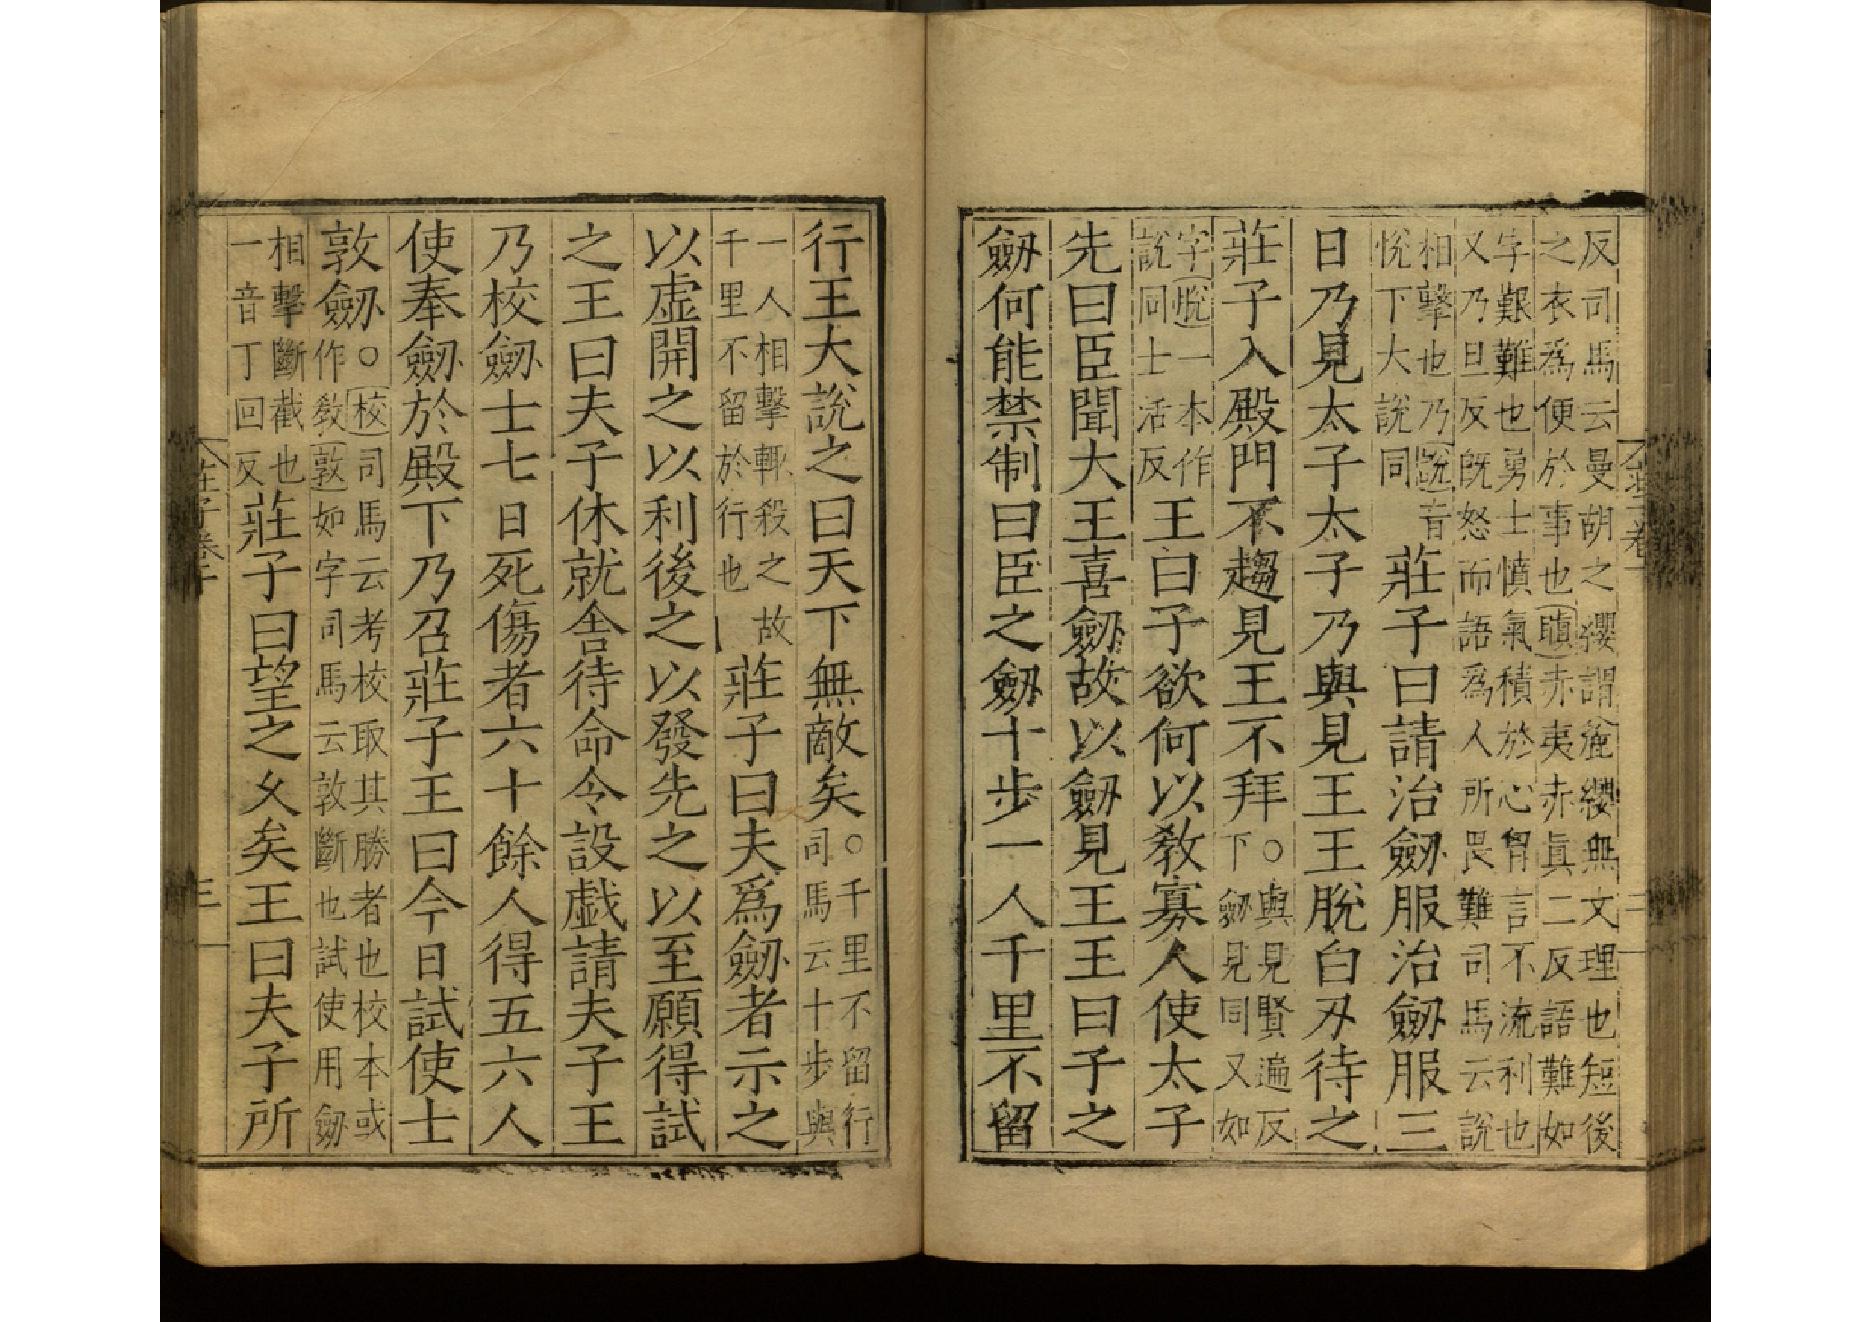 反司馬云曼胡之纓謂麄纓無文理也短後
之衣為便於事也瞋赤夷赤眞二反語難如
字艱難也勇士憤氣積於心胷言不流利也
又乃旦反旣怒而語為人所畏難司馬云說
相擊也乃說音
悅下大說同
莊子曰請治劒服治劒服三
日乃見太子太子乃與見王王脫白刃待之
莊子入殿門不趨見王不拜
○與見賢遍反
下劒見同又如
字脫一本作
說同士活反
王曰子欲何以敎寡人使太子
先曰臣聞大王喜劒故以劒見王王曰子之
劒何能禁制曰臣之劒十步一人千里不留
行王大說之曰天下無敵矣
○千里不留行
司馬云十步與
一人相擊輙殺之故
千里不留於行也
莊子曰夫爲劒者示之
以虛開之以利後之以發先之以至願得試
之王曰夫子休就舍待命令設戲請夫子王
乃校劒士七日死傷者六十餘人得五六人
使奉劒於殿下乃召莊子王曰今日試使士
敦劒
○校司馬云考校取其勝者也校本或
作敎敦如字司馬云敦斷也試使用劒
相擊斷截也
一音丁回反
莊子曰望之久矣王曰夫子所
莊子卷十
三